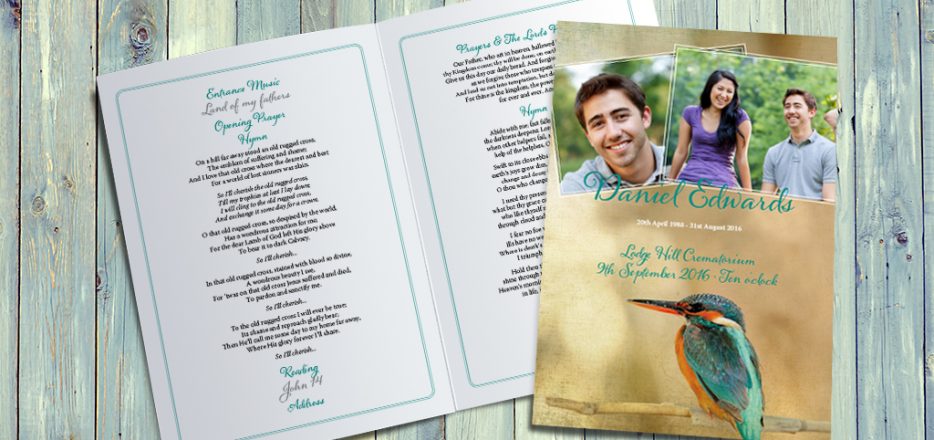 Entrance Music
Land of my fathers
Opening Prayer
Hymn
On a hill far away stood an old rugged cross,
The emblem of suffering and shame;
And I love that old cross where the dearest and best
For a world of lost sinners was slain.
So I'll cherish the old rugged cross,
Till my trophies at last I lay down,
I will cling to the old rugged cross,
And exchange it some day for a crown.
O that old rugged cross, so despised by the world,
Has a wondrous attraction for me
For the dear Lamb of God left His glory above
To bear it to dark Calvary.
So I'll cherish...
In that old rugged cross, stained with blood so divine,
A wondrous beauty I see,
For 'twas on that old cross Jesus suffered and died,
To pardon and sanctify me.
So I'll cherish...
To the old rugged cross I will ever be true;
Its shame and reproach gladly bear;
Then He'll call me some day to my home far away,
Where His glory forever I'll share.
So I'll cherish...
Reading
John 14
Address
Prayers & The Lords
Our Father, who art in heaven, hallowed
thy Kingdom come; thy will be done, on earth
Give us this day our daily bread. And forgive
as we forgive those who trespass
And lead us not into temptation, but
For thine is the kingdom, the power
for ever and ever.
Hymn
Abide with me; fast falls
the darkness deepens, Lord
When other helpers fail,
help of the helpless, O
Swift to its close ebbs
earth's joys grow dim,
change and decay
O thou who changest
I need thy presence
what but thy grace
who like thyself
through cloud and
I fear no foe
ills have no
Where is death's
I triumph
Hold then
shine through
Heaven's morning
in life, in
Daniel Edwards
20th April 1988 - 31st August 2016
Lodge Hill Crematorium
9th September 2016 - Ten o'clock